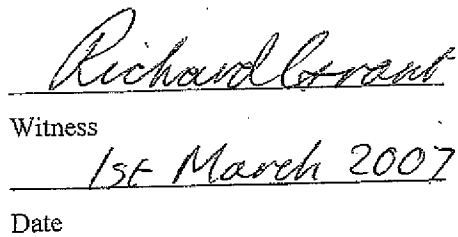 Richard Grant
Witness
1st March 2007
Date